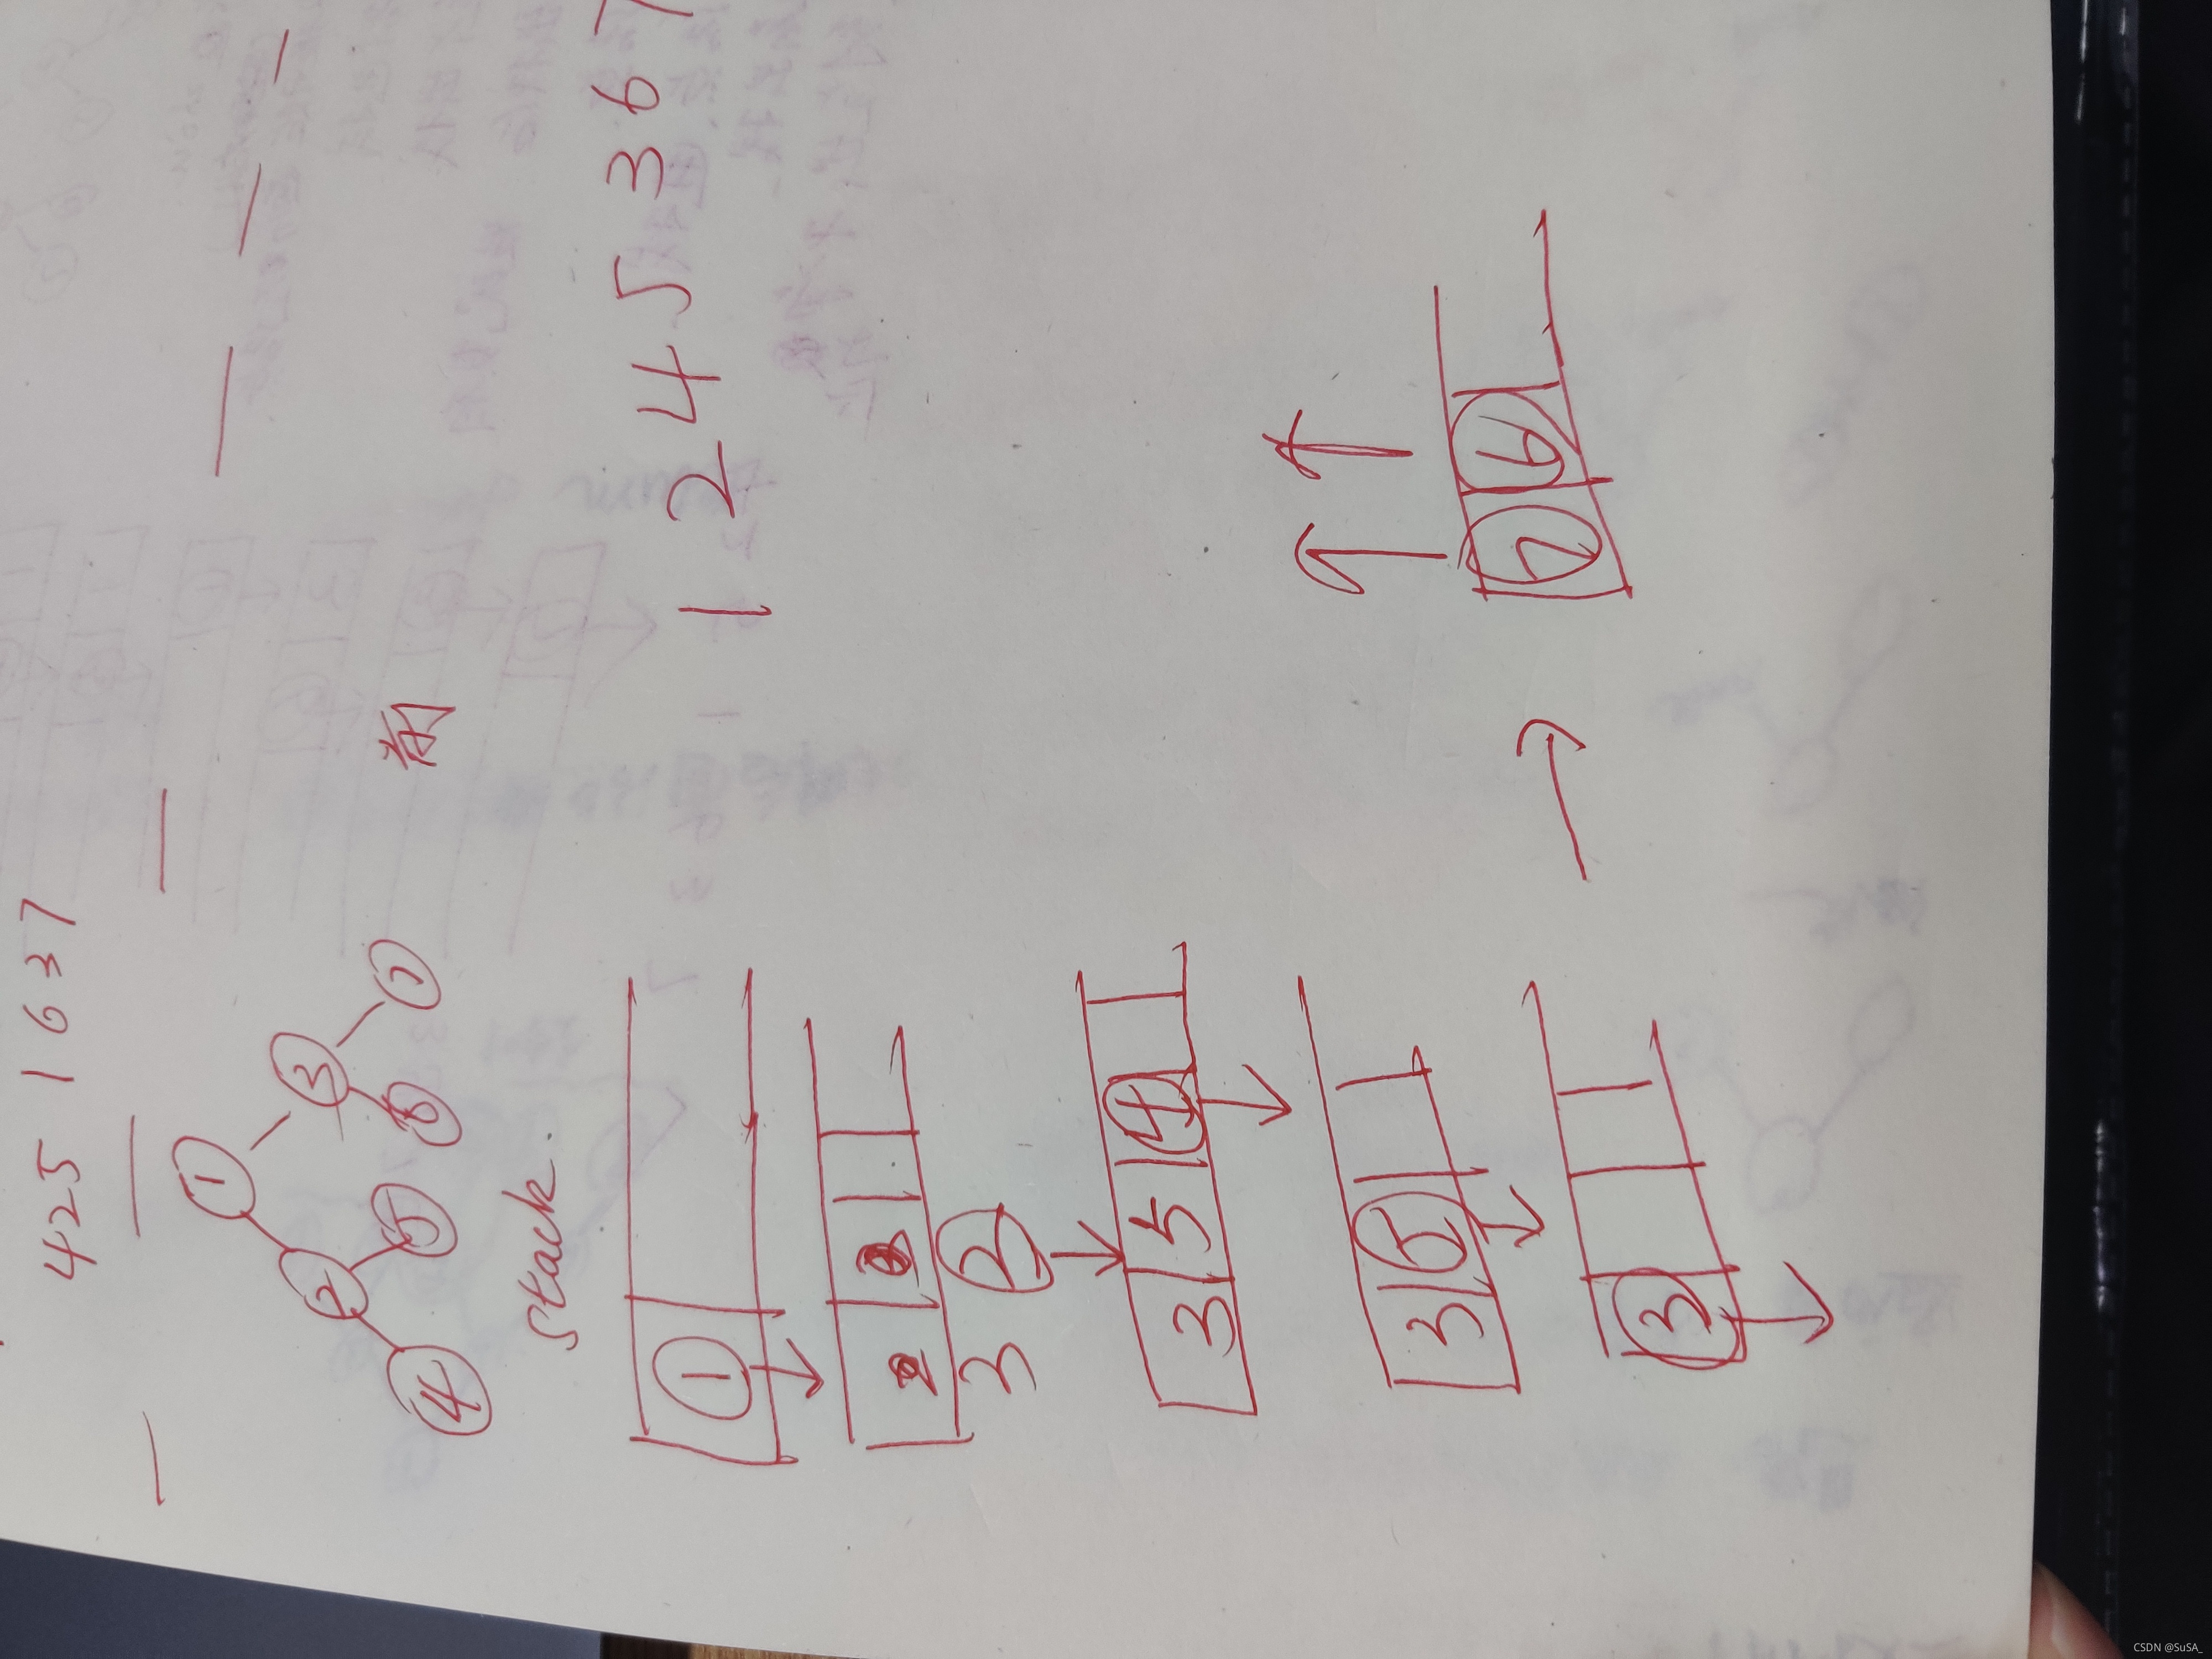 425 1 637
1
2 3
4 5 6 7
前
1 2 4 5 3 6 7
Stack.
1
2
3 2
3 5 4
3 5
3
7 6
CSDN @SuSA_